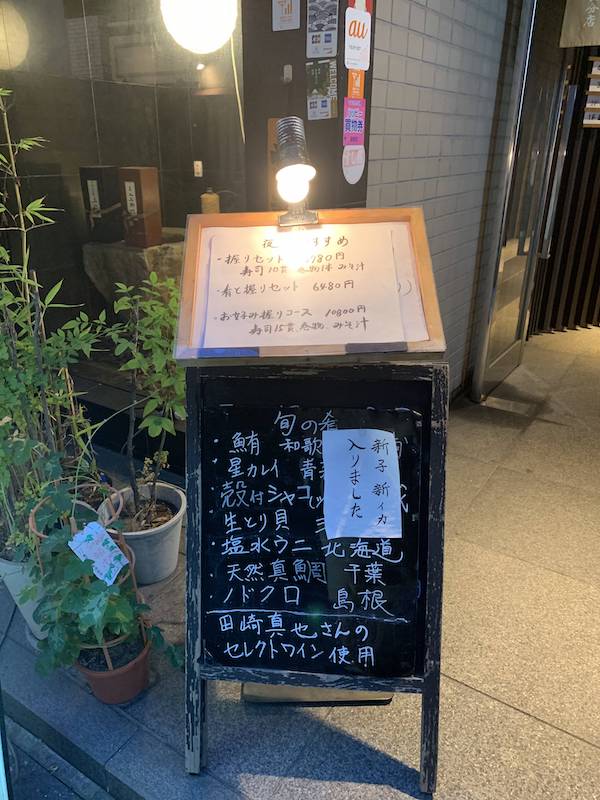 au
WELCOME
買物券
夜 すすめ
・握りセット 780円
寿司10貫、巻物1本 みそ汁
・肴と握りセット 6480円
・お好み握りコース 10800円
寿司15貫、巻物、みそ汁
旬の肴
・鮪 和歌
・星カレイ 青
・殻付シャコ
・生とり貝
・塩水ウニ 北海道
・天然真鯛 千葉
・ノドクロ 島根
田崎真也さんの
セレクトワイン使用
新子 新イカ
入りました